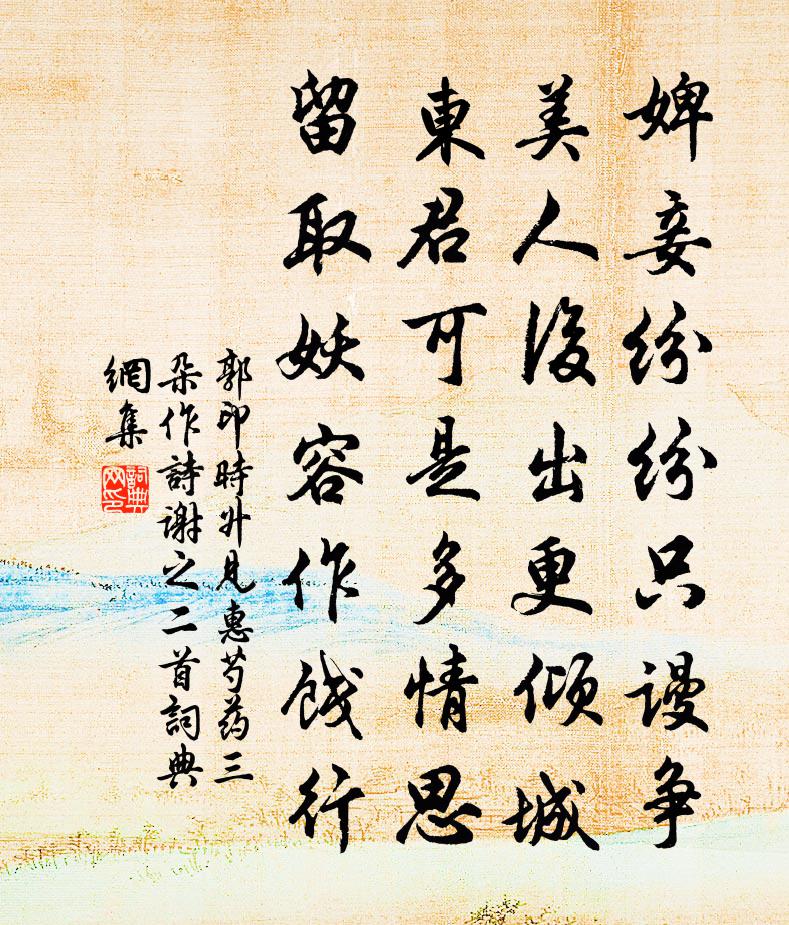 婢妾纷纷只謾争
美人後出更倾城
東君可是多情思
留取妖容作饯行
郭印時升見惠芍药三
朵作詩谢之二首詞典
網集
詞典
网印